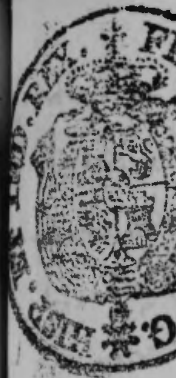 FE
G. HISP. ET IND. REX.